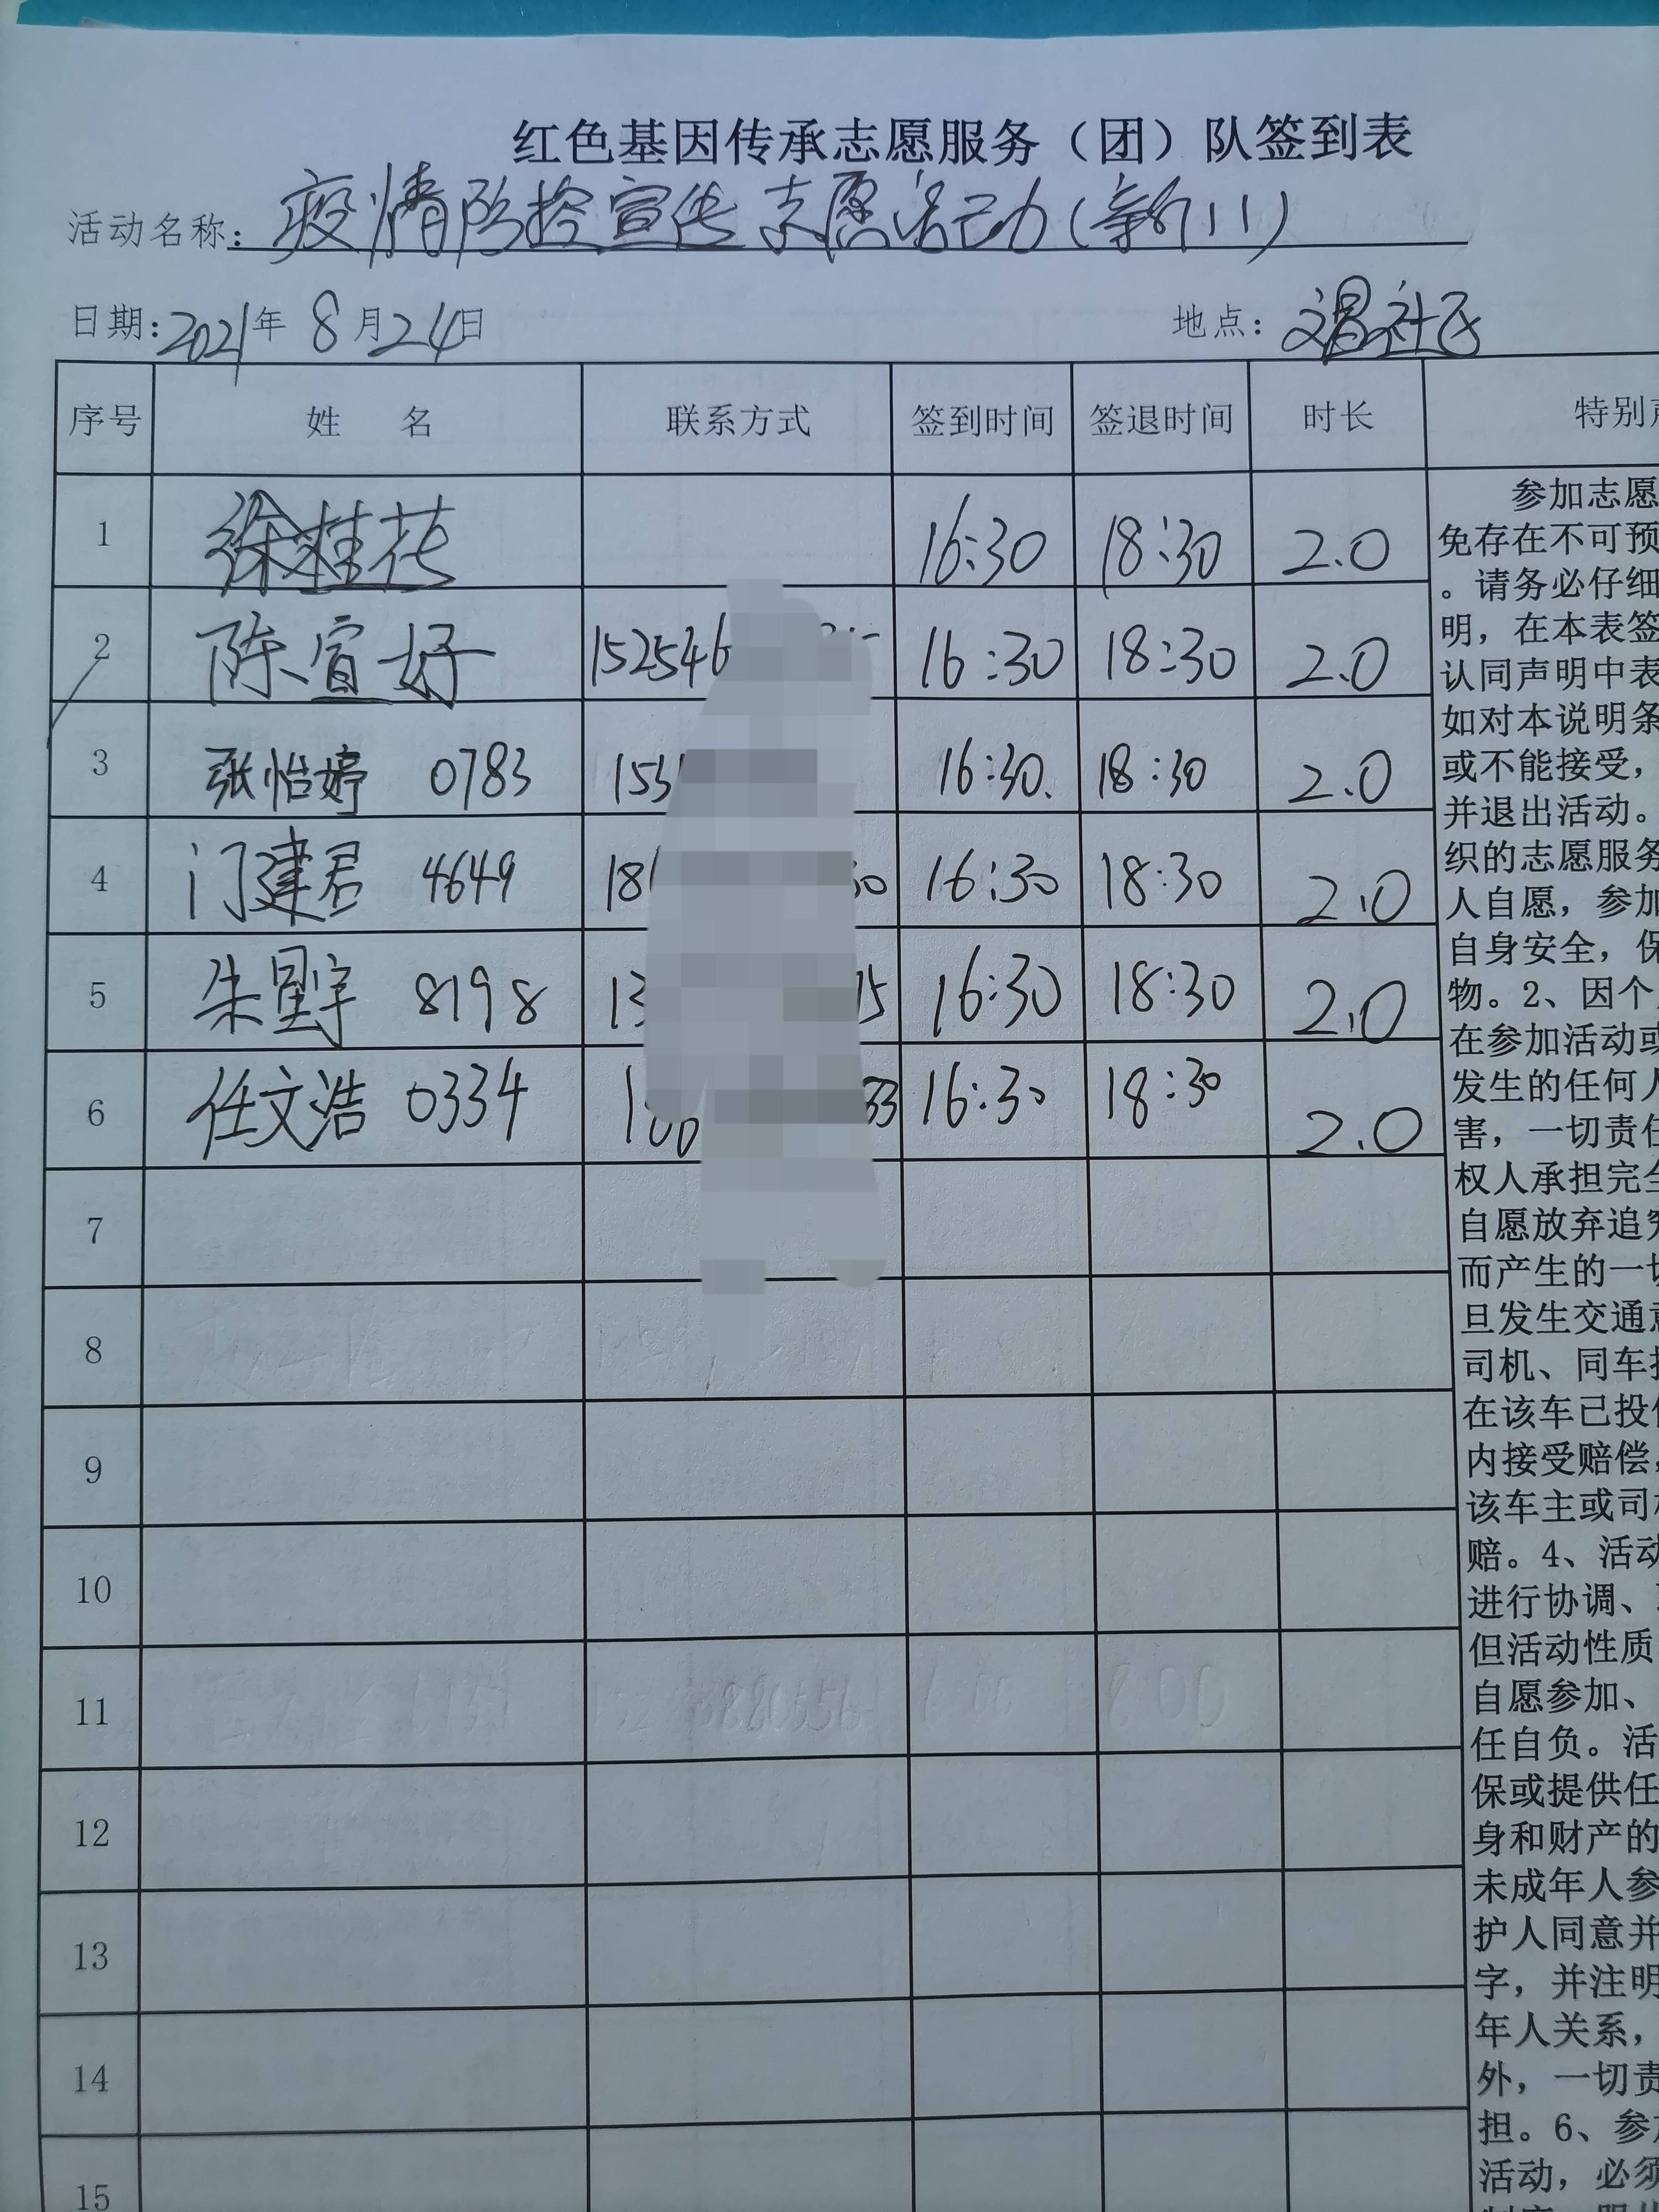 红色基因传承志愿服务（团）队签到表
活动名称：疫情防控宣传志愿活动（
日期：2021年 8月24日 地点：社区
序号 姓 名 联系方式 签到时间 签退时间 时长 特别
1 徐桂花 16:30 18:30 2.0
2 陈宣好 152546 16:30 18:30 2.0
3 张怡婷 0783 153 16:30. 18:30 2.0
4 门建君 4649 18 16:30 18:30 2.0
5 朱星宇 8198 13 15 16:30 18:30 2.0
6 任文浩 0334 33 16:30 18:30 2.0
7
8
9
10
11
12
13
14
15
参加志愿
免存在不可预
。请务必仔细
明，在本表签
认同声明中表
如对本说明条
或不能接受，
并退出活动。
织的志愿服务
人自愿，参加
自身安全，保
物。2、因个
在参加活动或
发生的任何人
害，一切责任
权人承担完全
自愿放弃追究
而产生的一切
旦发生交通意
司机、同车
在该车已投保
内接受赔偿，
该车主或司机
赔。4、活动
进行协调、
但活动性质
自愿参加、
任自负。活
保或提供任
身和财产的
未成年人参
护人同意并
字，并注明
年人关系，
外，一切责
担。6、参加
活动，必须